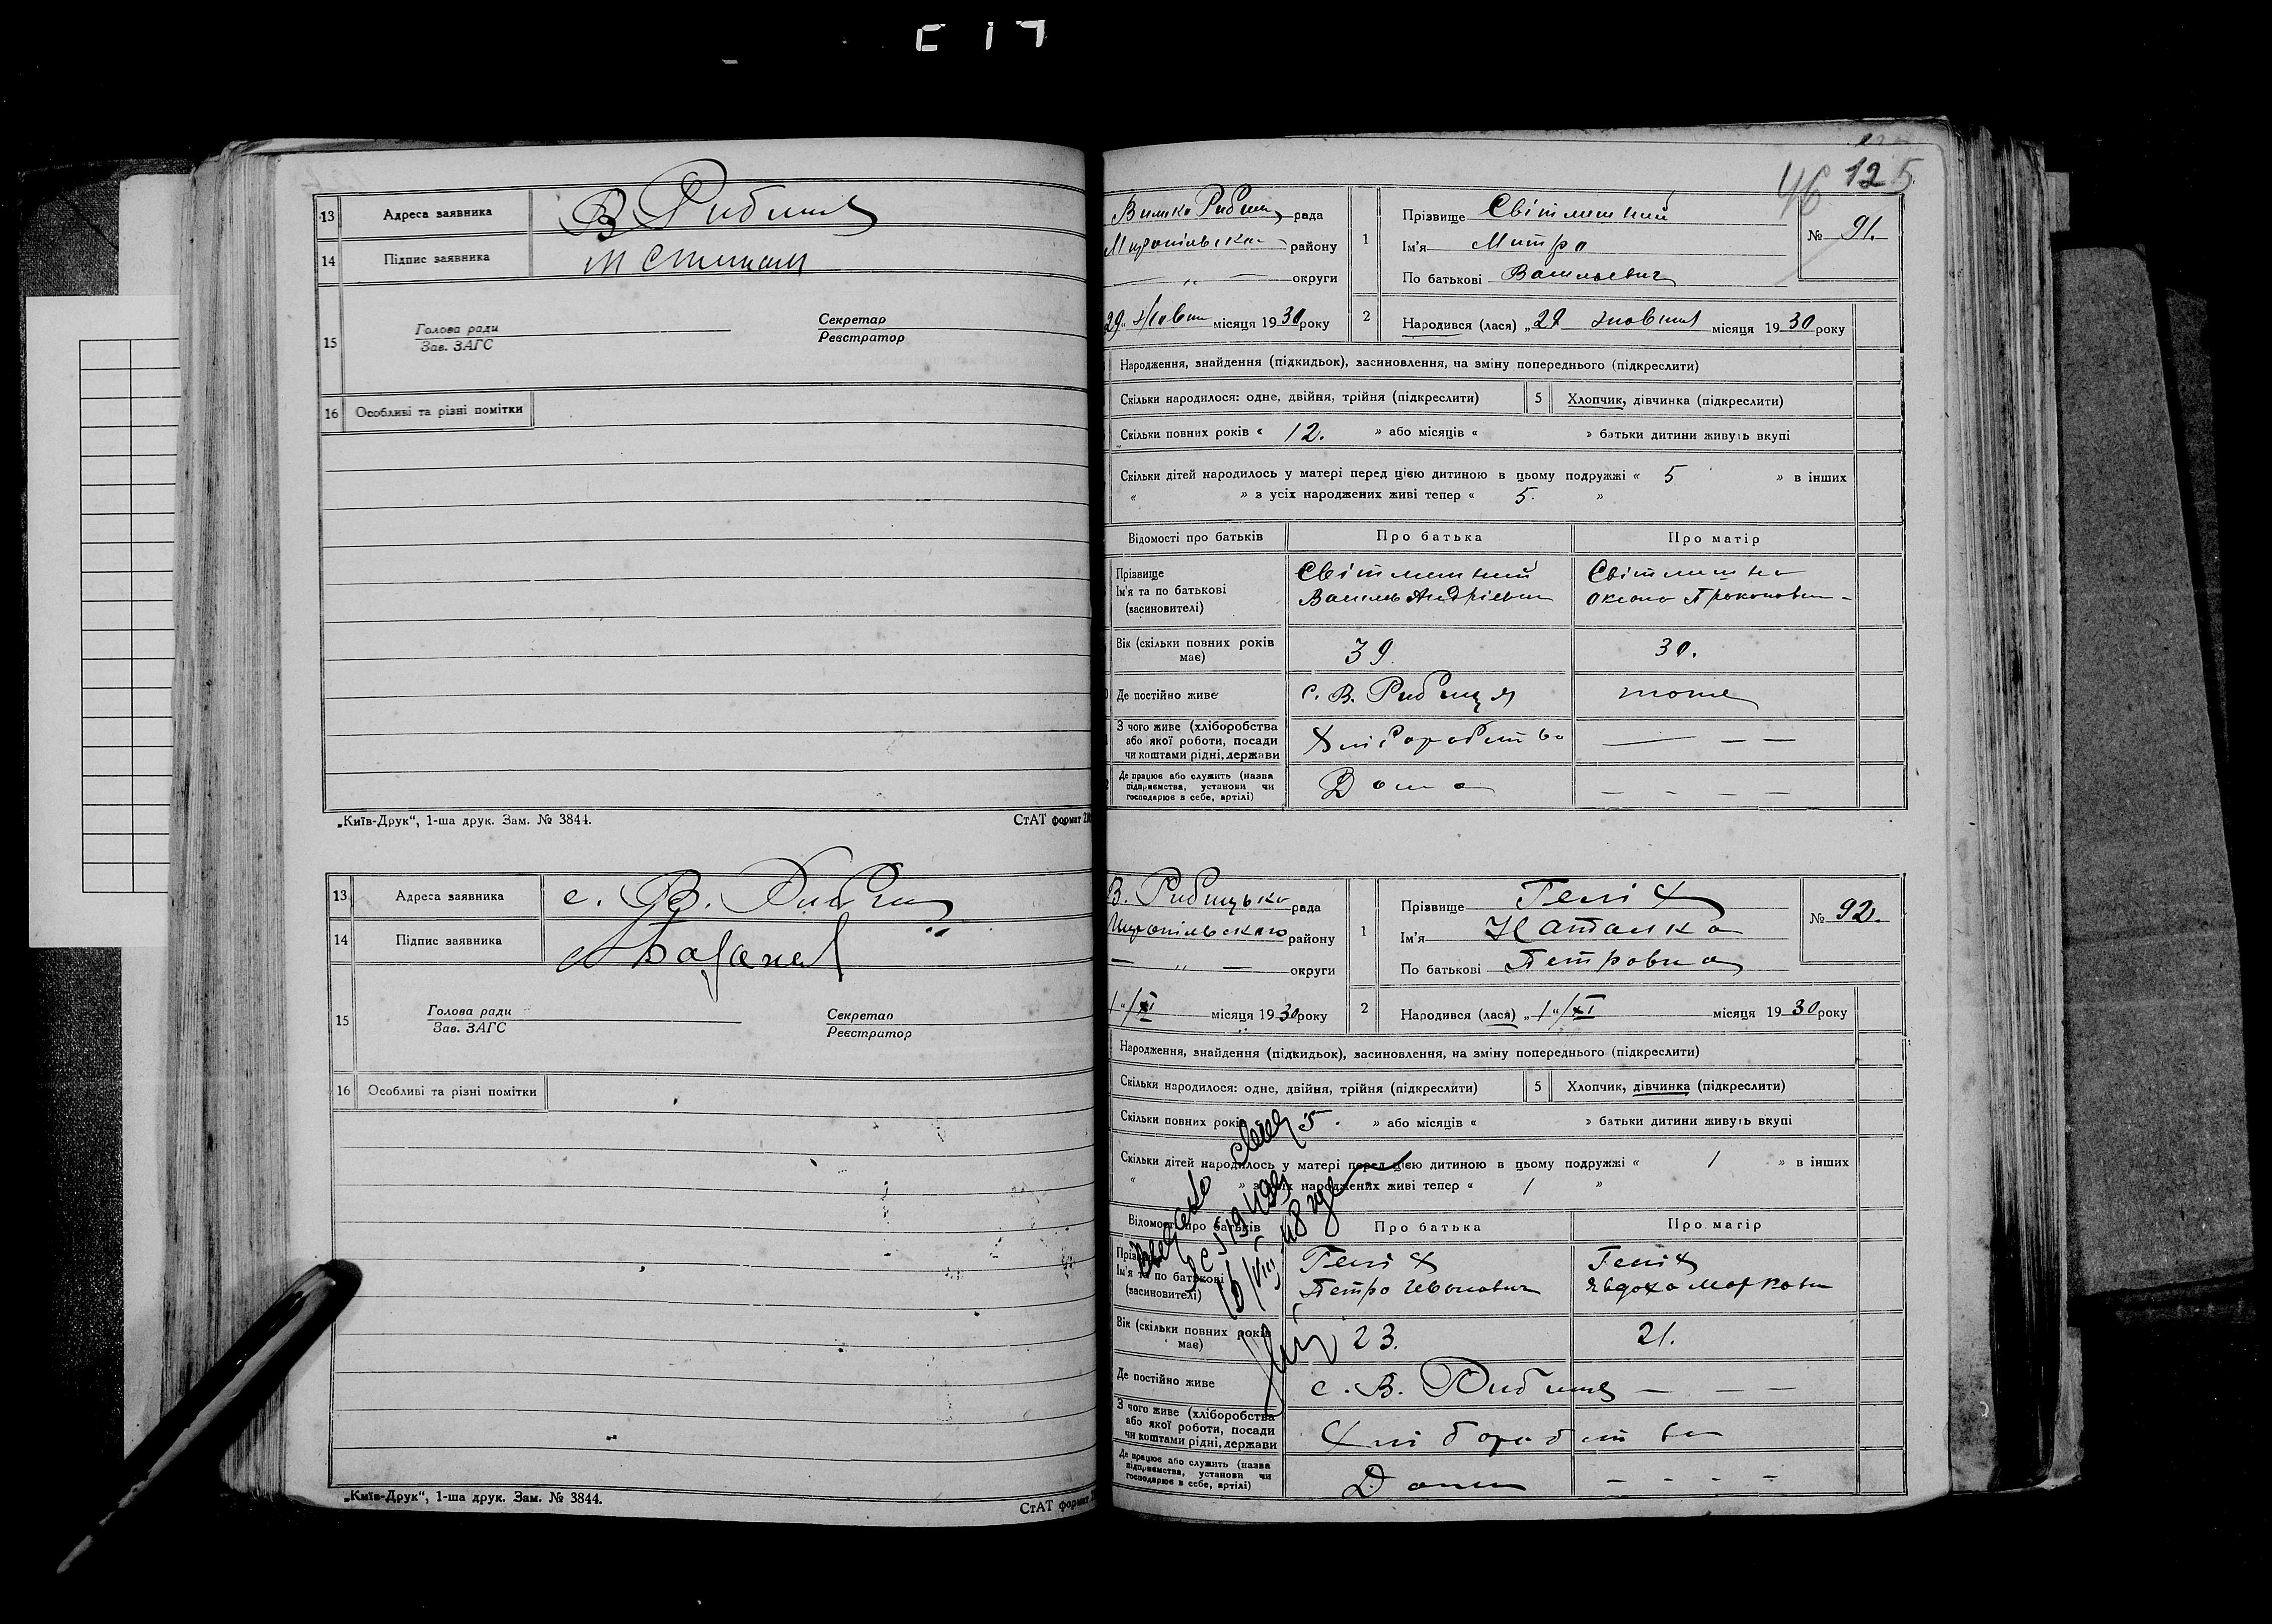 13 Адреса заявника В Рибиця
14 Підпис заявника
15 Голова ради Секретар
Зав. ЗАГС Реєстратор
16 Особливі та різні помітки
„Київ-Друк“, 1-ша друк. Зам. № 3844. СтАТ формат
13 Адреса заявника с. В. Рибиця
14 Підпис заявника
15 Голова ради Секретар
Зав. ЗАГС Реєстратор
16 Особливі та різні помітки
„Київ-Друк“, 1-ша друк. Зам. № 3844. СтАТ формат
46 125
рада
району
округи
29 Жовтн місяця 1930 року
1 Прізвище Світличний
Ім'я Митро
По батькові Васильевич
№ 91.
2 Народився (лася) „29 жовтня місяця 1930 року
Народження, знайдення (підкидьок), засиновлення, на зміну попереднього (підкреслити)
Скільки народилося: одне, двійня, трійня (підкреслити) 5 Хлопчик, дівчинка (підкреслити)
Скільки повних років « 12. » або місяців « » батьки дитини живуть вкупі
Скільки дітей народилось у матері перед цією дитиною в цьому подружжі « 5 » в інших
« » з усіх народжених живі тепер « 5. »
Відомості про батьків Про батька Про матір
Прізвище Світличний Світлична
Ім'я та по батькові Василь Андрієвич Оксана Прокопович
(засиновителі)
Вік (скільки повних років 39. 30.
має)
Де постійно живе с. В. Рибиця тоже
З чого живе (хліборобства Хліборобство
або якої роботи, посади
чи коштами рідні, держави
Де працює або служить (назва Дома
підприємства, установи чи
господарює в себе, артілі)
В. Рибицька рада
району
округи
1“/XI місяця 1930 року
1 Прізвище Геліх
Ім'я Наталка
По батькові Петровна
№ 92.
2 Народився (лася) „1“/XI місяця 1930 року
Народження, знайдення (підкидьок), засиновлення, на зміну попереднього (підкреслити)
Скільки народилося: одне, двійня, трійня (підкреслити) 5 Хлопчик, дівчинка (підкреслити)
Скільки повних років 5. » або місяців « » батьки дитини живуть вкупі
Скільки дітей народилось у матері перед цією дитиною в цьому подружжі « 1 » в інших
« » з усіх народжених живі тепер « 1 »
Відомості про батьків Про батька Про матір
Прізвище Геліх Геліх
Ім'я та по батькові Петро Иванович Явдоха Маркови
(засиновителі)
Вік (скільки повних років 23. 21.
має)
Де постійно живе с. В. Рибиця
З чого живе (хліборобства Хліборобство
або якої роботи, посади
чи коштами рідні, держави
Де працює або служить (назва Дома
підприємства, установи чи
господарює в себе, артілі)